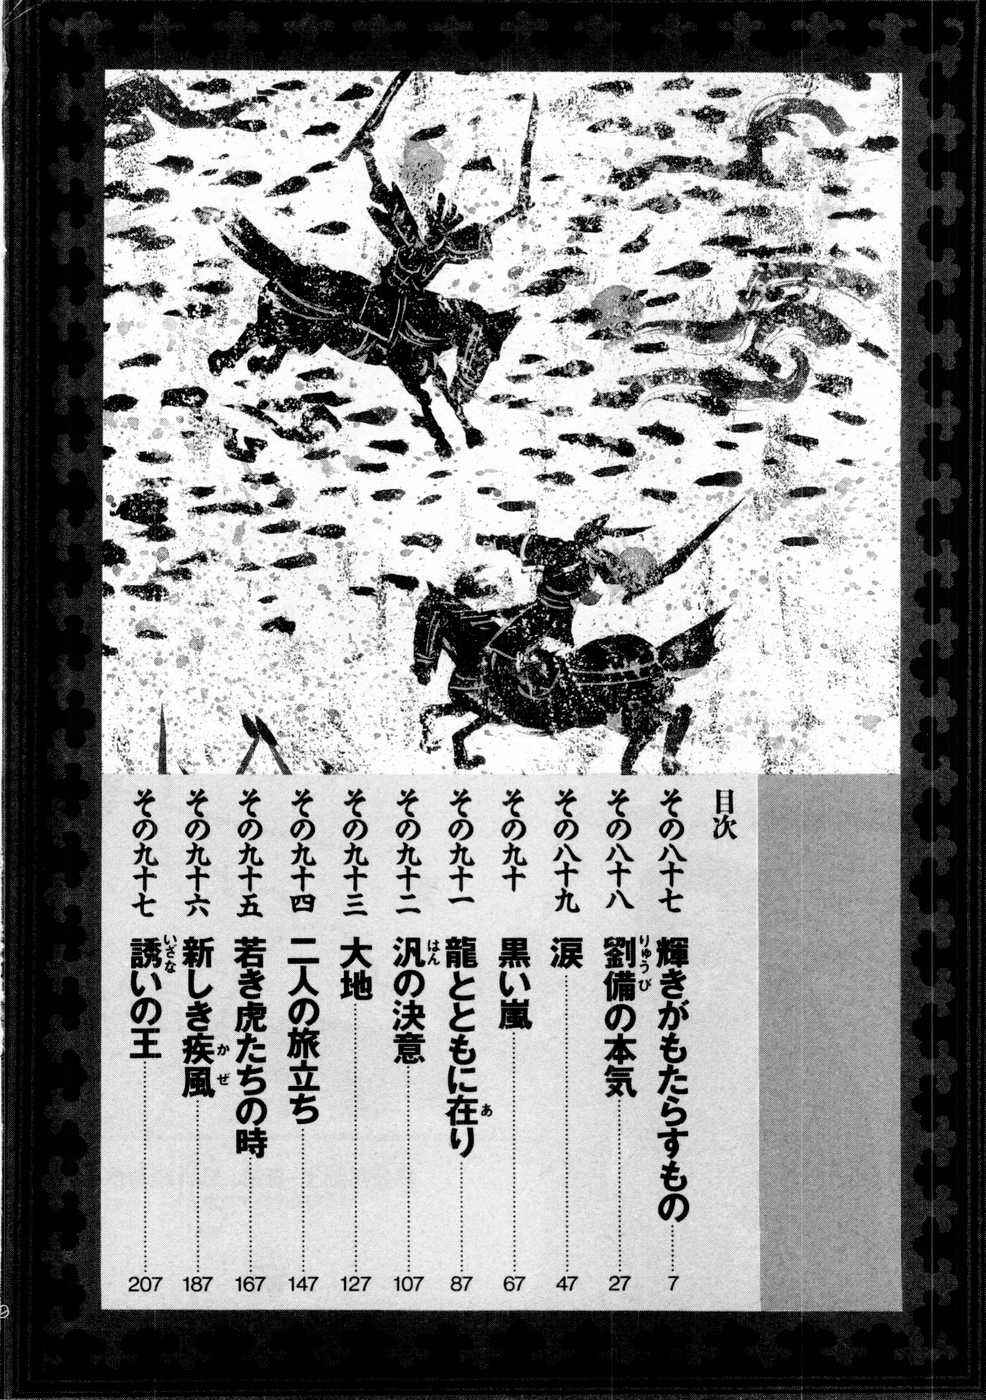 目次
その八十七 輝きがもたらすもの 7
その八十八 劉備の本気 27
りゅうび
その八十九 涙 47
その九十 黒い嵐 67
その九十一 龍とともに在り 87
あ
その九十二 汎の決意 107
はん
その九十三 大地 127
その九十四 二人の旅立ち 147
その九十五 若き虎たちの時 167
その九十六 新しき疾風 187
かぜ
その九十七 誘いの王 207
いざな